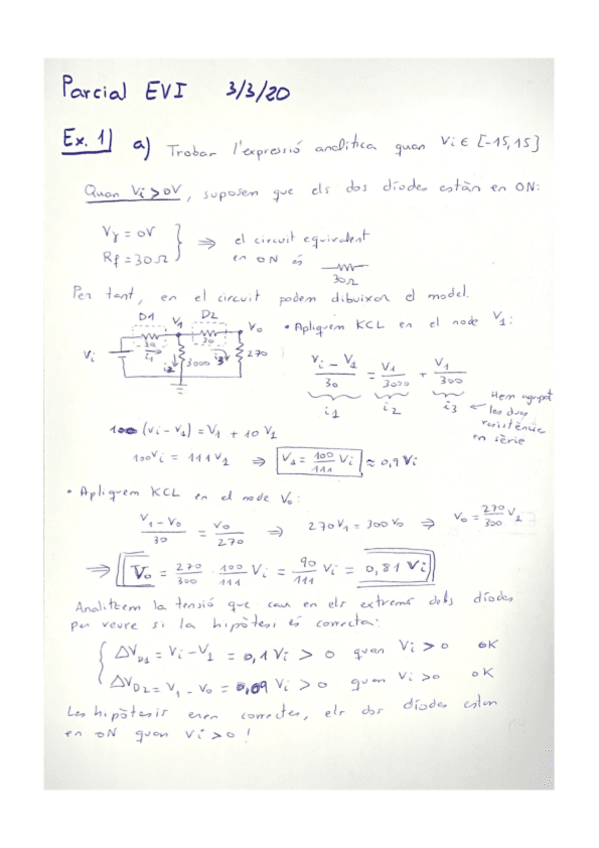 Parcial EVI 3/3/20
Ex. 1) a) Trobar l'expressió analítica quan Vi ∈ [-15,15]
Quan Vi > 0V, suposem que els dos díodes estàn en ON:
Vγ = 0V
Rf = 30Ω
⇒ el circuit equivalent
en ON és
30Ω
Per tant, en el circuit podem dibuixar el model.
D1 V1 D2 Vo
30 30
Vi i1 i2 3000 i3 270
• Apliquem KCL en el node V1:
(Vi - V1)/30 = V1/3000 + V1/300
i1 i2 i3
Hem agrupat
les dues
resistències
en sèrie
100 (Vi - V1) = V1 + 10 V1
100Vi = 111V1 ⇒ V1 = 100/111 Vi ≈ 0,9 Vi
• Apliquem KCL en el node Vo:
(V1 - Vo)/30 = Vo/270 ⇒ 270V1 = 300Vo ⇒ Vo = 270/300 V1
⇒ Vo = 270/300 · 100/111 Vi = 90/111 Vi = 0,81 Vi
Analitzem la tensió que cau en els extrems dels díodes
per veure si la hipòtesi és correcta:
ΔVD1 = Vi - V1 = 0,1 Vi > 0 quan Vi > 0 OK
ΔVD2 = V1 - Vo = 0,09 Vi > 0 quan Vi > 0 OK
Les hipòtesis eren correctes, els dos díodes estan
en ON quan Vi > 0!